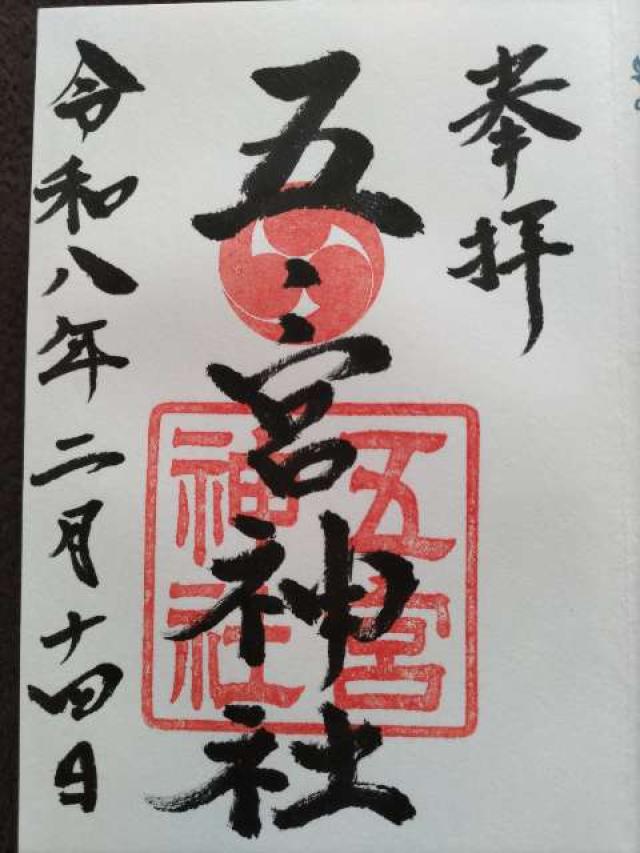 奉拝
五宮神社
五宮
神社
令和八年二月十四日